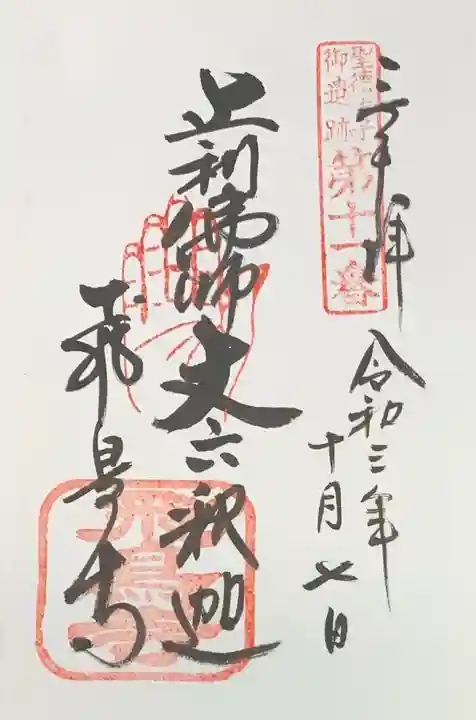 奉拝
聖徳太子
御遺跡
第十一番
令和三年
十月七日
止利佛師 丈六釈迦
飛鳥寺
飛鳥寺